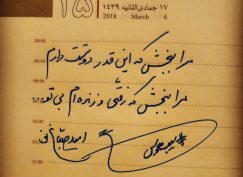 ۱۵
۱۷ جمادی الثانیه ۱۴۳۹
2018 March 6
08:00
مرا ببخش که این قدر دوستت دارم
09:00
مرا ببخش که رفتی و زنده ام بی تو
10:00
امید صباغ نو
11:00